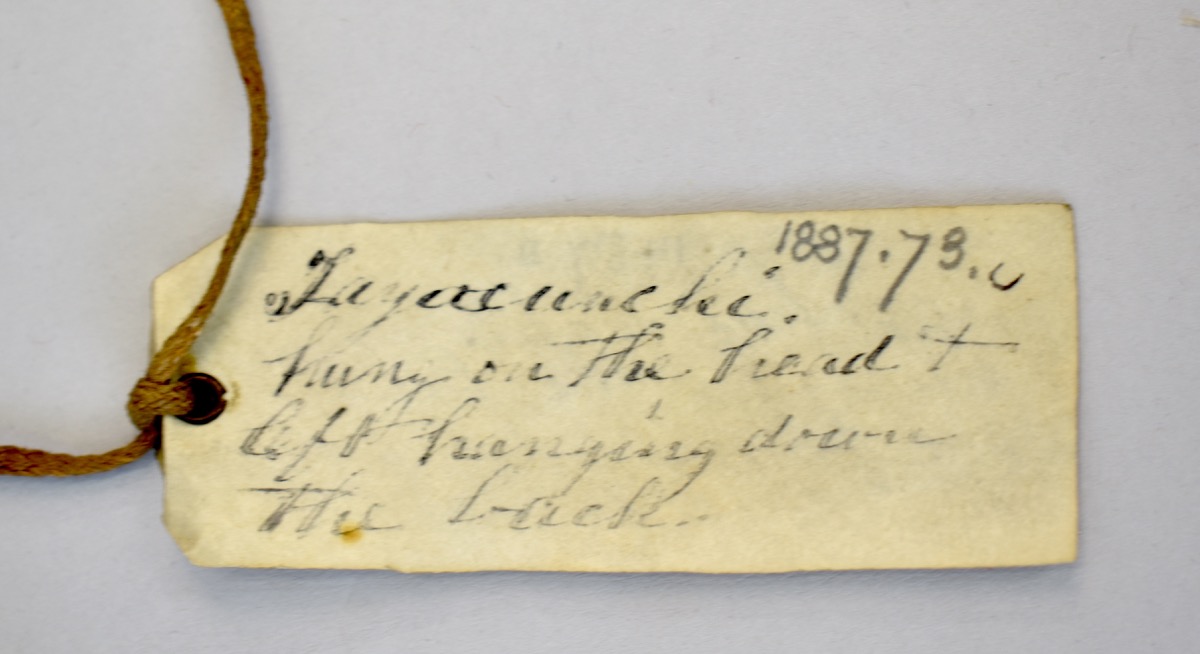 1887.73.
hung on the head +
left hanging down
the back.